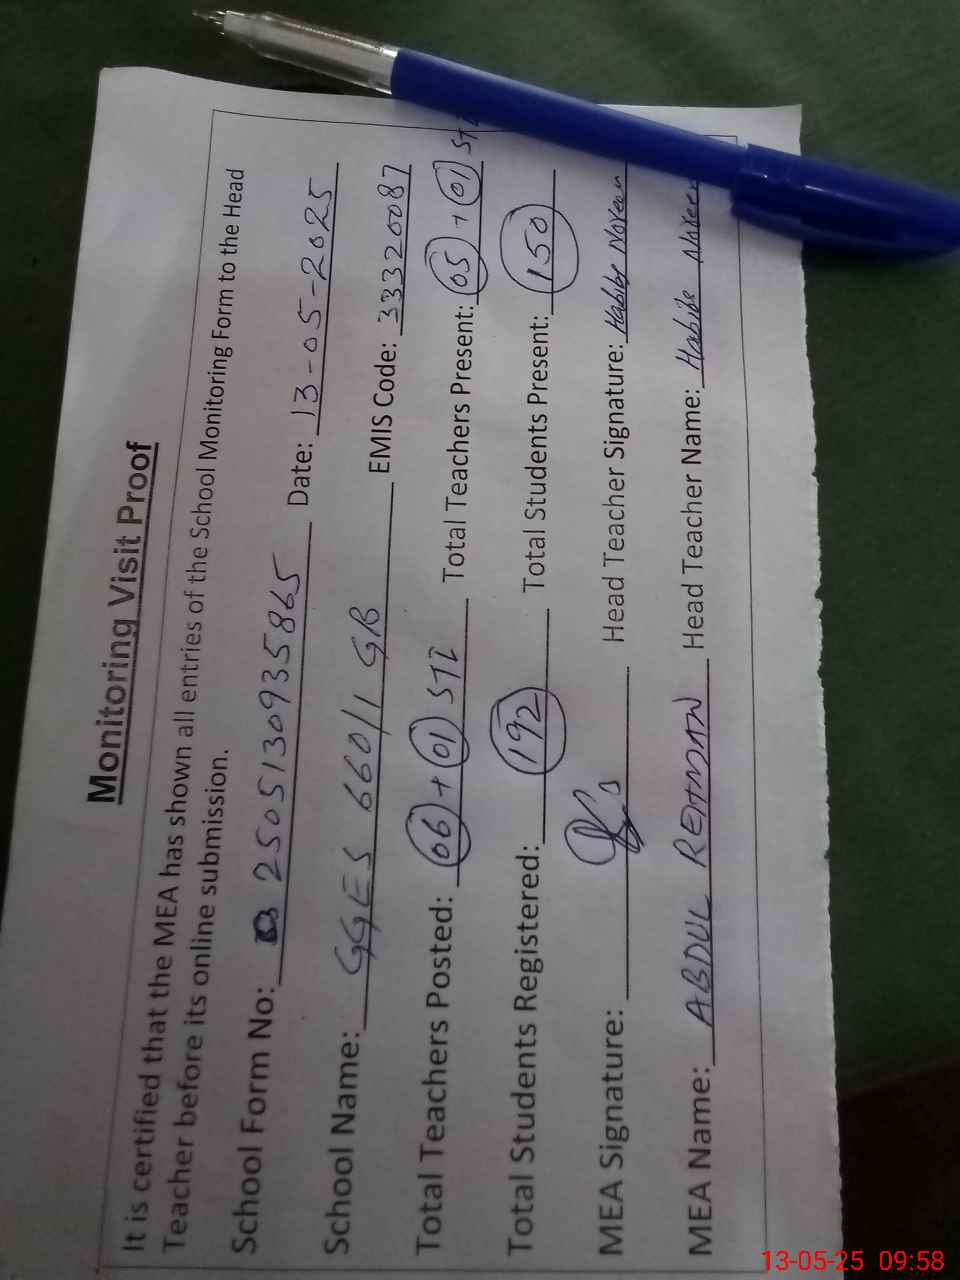 Monitoring Visit Proof
It is certified that the MEA has shown all entries of the School Monitoring Form to the Head
Teacher before its online submission.
School Form No: 2505130935865 Date: 13-05-2025
School Name: GGES 660/1 GB EMIS Code: 33320087
Total Teachers Posted: 06 + 01 STI Total Teachers Present: 05 + 01 STI
Total Students Registered: 192 Total Students Present: 150
MEA Signature: Head Teacher Signature: Habibe Noreen
MEA Name: ABDUL REHMAN Head Teacher Name: Habibe Noreen
13-05-25 09:58